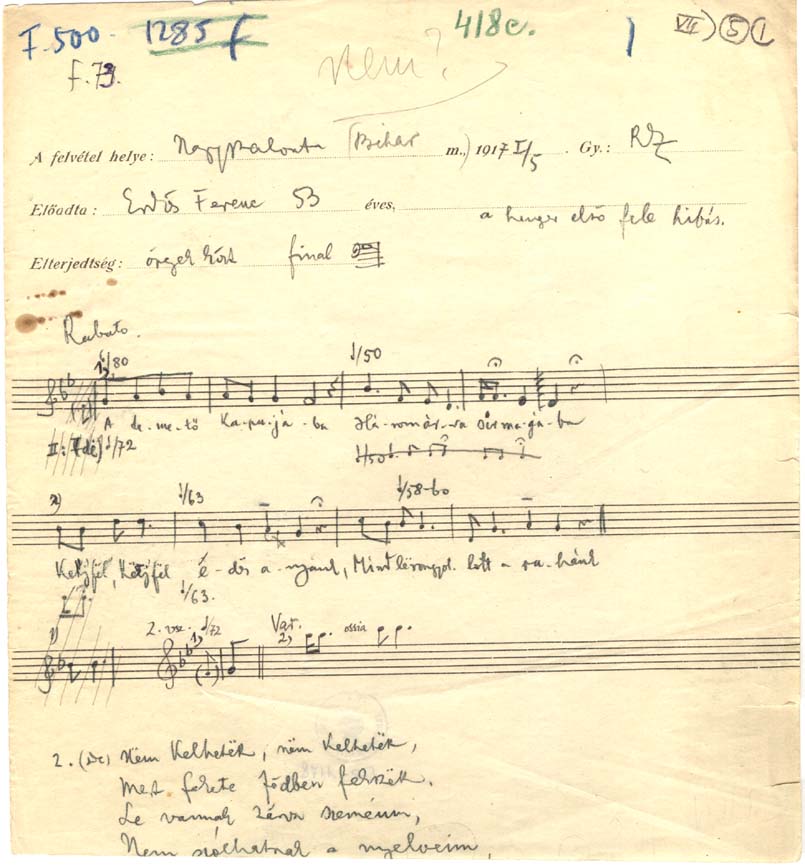 F.500- 1285 f 418c. VII) 5 1
f.73.
Nem?
A felvétel helye: Nagyszalonta (Bihar m.) 1917 I/5. Gy.: RZ
Előadta: Erdős Ferenc 53 éves, a henger első fele hibás.
Elterjedtség: final
Rubato.
/80 /50
A te-me-tő Ka-pu-já-ba Há-rom ár-va sír ma-gá-ba
II: (de) /72 /50
2) /63 /58-60
Keljfël, Keljfël é-dës a-nyánk, Mind lërongyol-lott a ru-hánk
/63.
1) 2. vsz. /72 Var. 2) ossia
2. (de) Nëm kelhetëk, nëm kelhetëk,
Mert fekete fődben fekszëk.
Le vannak zárva szemeim,
Nem szólhatnak a nyelveim,